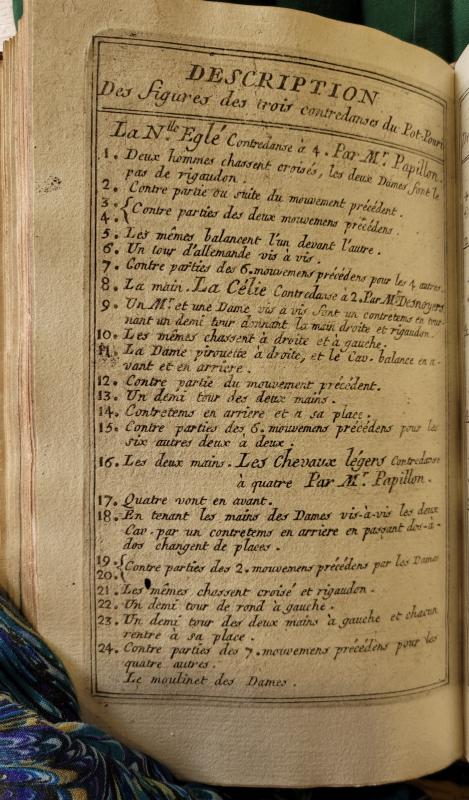 DESCRIPTION
Des figures des trois contredanses du Pot-Pouri
La N.lle Eglé Contredanse à 4. Par Mr. Papillon.
1. Deux hommes chassent croisés, les deux Dames font le
pas de rigaudon.
2. Contre partie ou suite du mouvement précédent.
3. { Contre parties des deux mouvemens précédens.
4. {
5. Les mêmes balancent l'un devant l'autre.
6. Un tour d'allemande vis à vis.
7. Contre parties des 6. mouvemens précédens pour les 4 autres.
8. La main. La Célie Contredanse à 2. Par Mr. Desnoyers
9. Un Mr. et une Dame vis à vis font un contretems en tour
nant un demi tour donnant la main droite et rigaudon.
10. Les mêmes chassent à droite et à gauche.
11. La Dame pirouette à droite, et le Cav. balance en a-
vant et en arriere.
12. Contre partie du mouvement précédent.
13. Un demi tour des deux mains.
14. Contretems en arriere et a sa place.
15. Contre parties des 6. mouvemens précédens pour les
six autres deux à deux.
16. Les deux mains. Les Chevaux légers Contredanse
à quatre Par Mr. Papillon.
17. Quatre vont en avant.
18. En tenant les mains des Dames vis-à-vis les deux
Cav. par un contretems en arriere en passant dos-à-
dos changent de places.
19. { Contre parties des 2. mouvemens précédens par les Dames
20. {
21. Les mêmes chassent croisé et rigaudon.
22. Un demi tour de rond à gauche.
23. Un demi tour des deux mains à gauche et chacun
rentre à sa place.
24. Contre parties des 7. mouvemens précédens pour les
quatre autres.
Le moulinet des Dames.